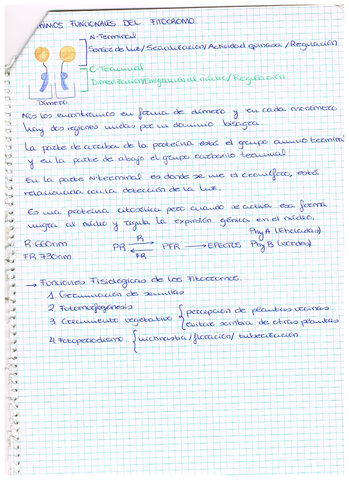 DOMINIOS FUNCIONALES DEL FITOCROMO
N-Terminal
Sensor de luz/Señalización/Actividad quinasa/Regulación
C-Terminal
Dimerización/migración al núcleo/Regulación
Dímero
Nos los encontramos en forma de dímero y en cada monómero
hay dos regiones unidas por un dominio bisagra
La parte de arriba de la proteína está el grupo amino terminal
y en la parte de abajo el grupo carbonio terminal
En la parte N-terminal es donde se une el cromóforo, está
relacionada con la detección de la luz.
Es una proteína citosólica pero cuando se activa esa forma
migra al núcleo y regula la expresión génica en el núcleo.
R 660nm PR R PFR EFECTOS Phy A (Etiolados)
FR 730nm FR Phy B (verdes)
→ Funciones Fisiológicas de los Fitocromos
1. Germinación de semillas
2. Fotomorfogénesis
3 Crecimiento vegetativo { percepción de plantas vecinas
evitar sombra de otras plantas
4. Fotoperiodismo { nictinastia/floración/tuberización